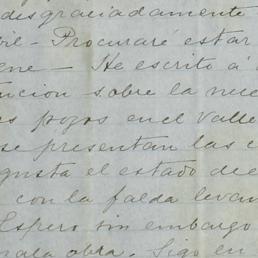 desgraciadamente
bil - Procuraré estar
ene - He escrito á
tencion sobre la nece
s pozos en el Valle
se presentan las c
gusta el estado de
con la falda levan
Espero sin embargo
mala obra. Sigo en